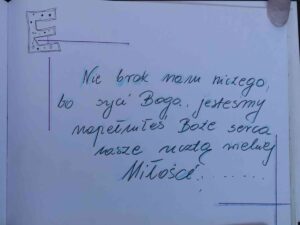 E
Nie brak nam niczego,
bo syci Boga jesteśmy
napełniłeś Boże serca
nasze ucztą wielkiej
Miłości.........